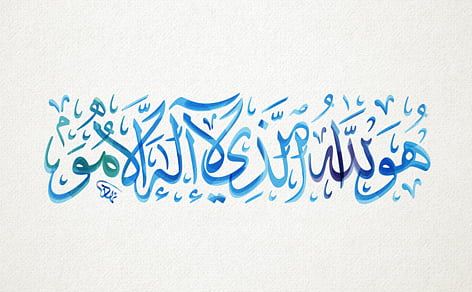 هُوَ ٱللَّهُ ٱلَّذِي لَآ إِلَٰهَ إِلَّا هُوَ